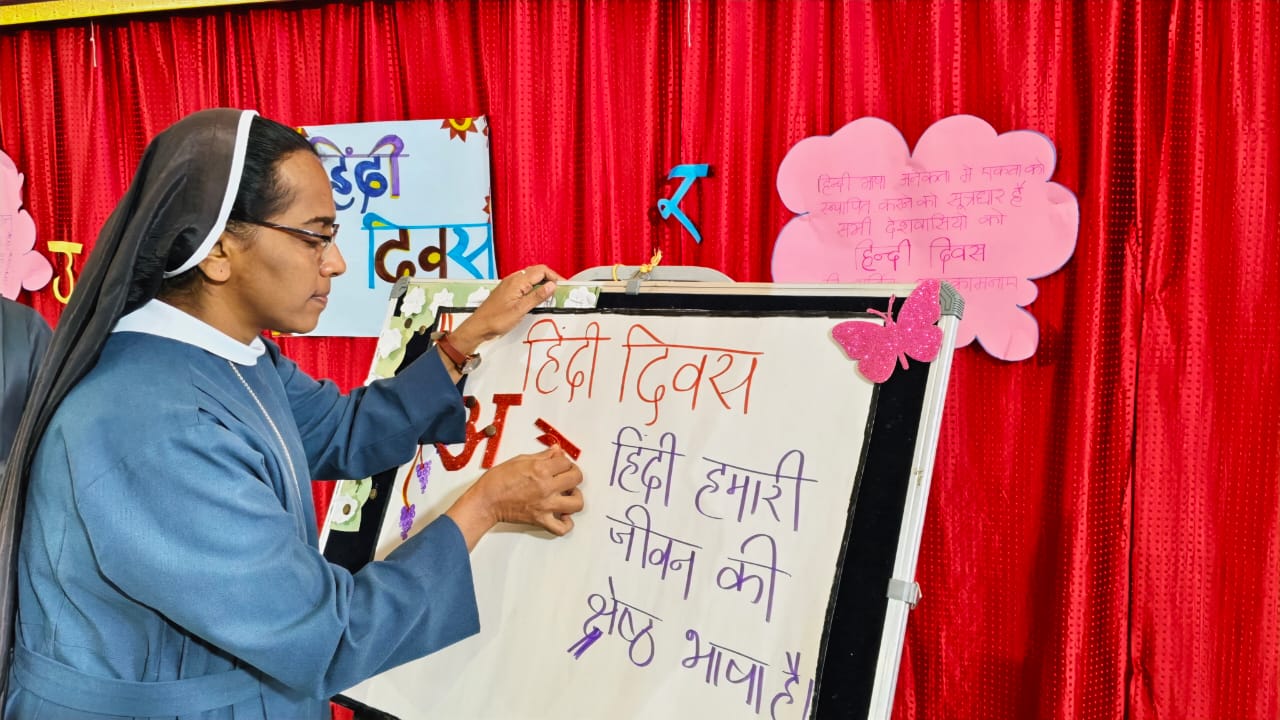 हिंदी
दिवस
उ
र
हिन्दी भाषा अनेकता मे एकता को
स्थापित करने की सूत्रधार है
सभी देशवासियो को
हिन्दी दिवस
हिंदी दिवस
अ
हिंदी हमारी
जीवन की
श्रेष्ठ भाषा है।